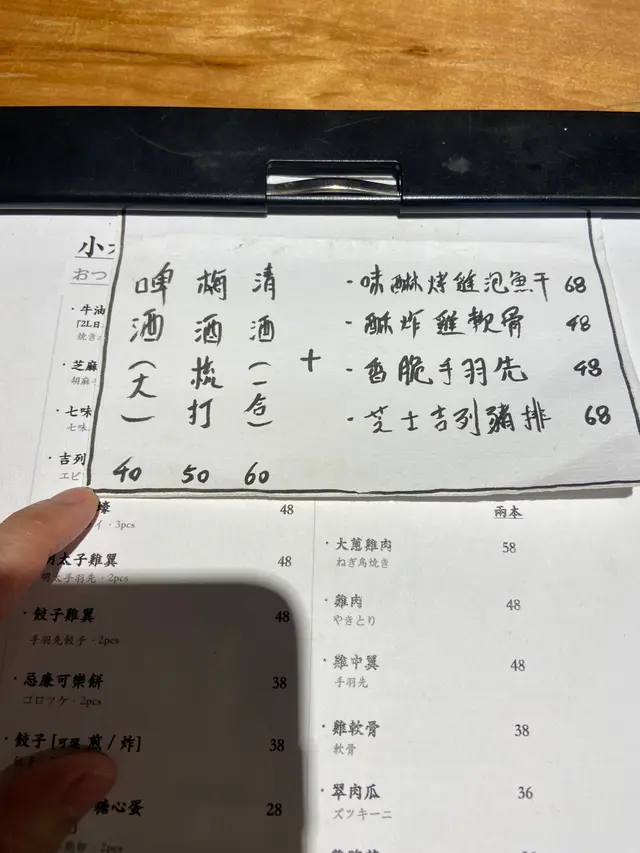 啤酒(大) 40
梅酒梳打 50
清酒(一合) 60
+
·味醂烤雞泡魚干 68
·酥炸雞軟骨 48
·香脆手羽先 48
·芝士吉列豬排 68
小
おつ
·牛油
「2L日
焼き
·芝麻
胡麻
·七味
七味
·吉列
エビ
蠔 48
イ・3pcs
明太子雞翼 48
明太手羽先・2pcs
·餃子雞翼 48
手羽先餃子・2pcs
·忌廉可樂餅 38
コロッケ・2pcs
·餃子 [可選 煎 / 炸] 38
餃子
糖心蛋 28
2pcs
兩本
·大蔥雞肉 58
ねぎ鳥焼き
·雞肉 48
やきとり
·雞中翼 48
手羽先
·雞軟骨 38
軟骨
·翠肉瓜 36
ズッキーニ